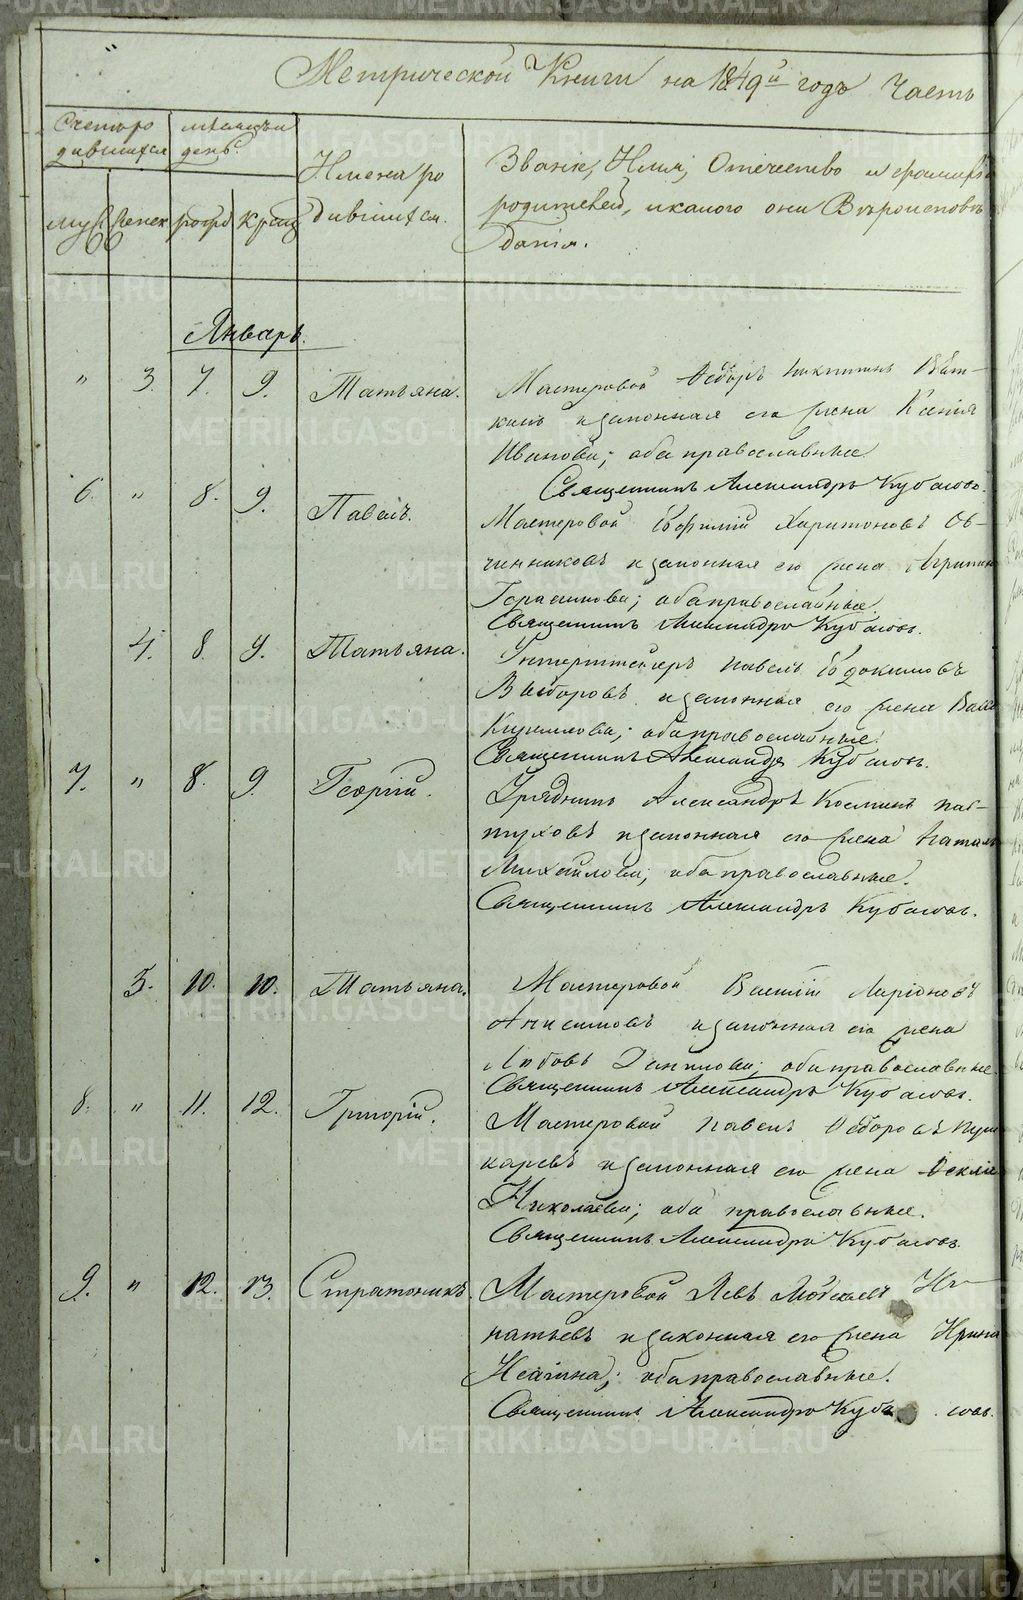 Метрической Книги на 1849й годъ Часть
Счетъ ро
дившихся
мѣсяцъ и
день.
Имена ро
дившихся.
Званіе, Имя, Отечество и фамилія
родителей, и какого они Вѣроисповѣ
данія.
муж женск рожд крещ
Январь.
" 3. 7. 9. Татьяна. Мастеровой Ѳедоръ Никитинъ Вят-
кинъ и законная его жена Ксенія
Иванова; оба православные
Священникъ Александръ Кубасовъ.
6. " 8. 9. Павелъ. Мастеровой Евфимій Харитоновъ Ов-
чинниковъ и законная его жена Агрипина
Герасимова; оба православные.
Священникъ Александръ Кубасовъ.
4. 8. 9. Татьяна. Унтерштейгеръ Павелъ Евдокимовъ
Выборовъ и законная его жена
Кирилова; оба православные.
Священникъ Александръ Кубасовъ.
7. " 8. 9. Георгій. Урядникъ Александръ Косминъ Пас-
туховъ и законная его жена Наталья
Михайлова; оба православные.
Священникъ Александръ Кубасовъ.
5. 10. 10. Татьяна. Мастеровой Василій Ларіоновъ
Анисимовъ и законная его жена
Любовь Данилова; оба православные.
Священникъ Александръ Кубасовъ.
8. " 11. 12. Григорій. Мастеровой Павелъ Ѳедоровъ Пуш
каревъ и законная его жена Ѳекла
Николаева; оба православные.
Священникъ Александръ Кубасовъ.
9. " 12. 13. Стратоникъ. Мастеровой Левъ Моисеевъ Иг-
натьевъ и законная его жена Ирина
Исаіина; оба православные.
Священникъ Александръ Кубасовъ.
METRIKI.GASO-URAL.RU